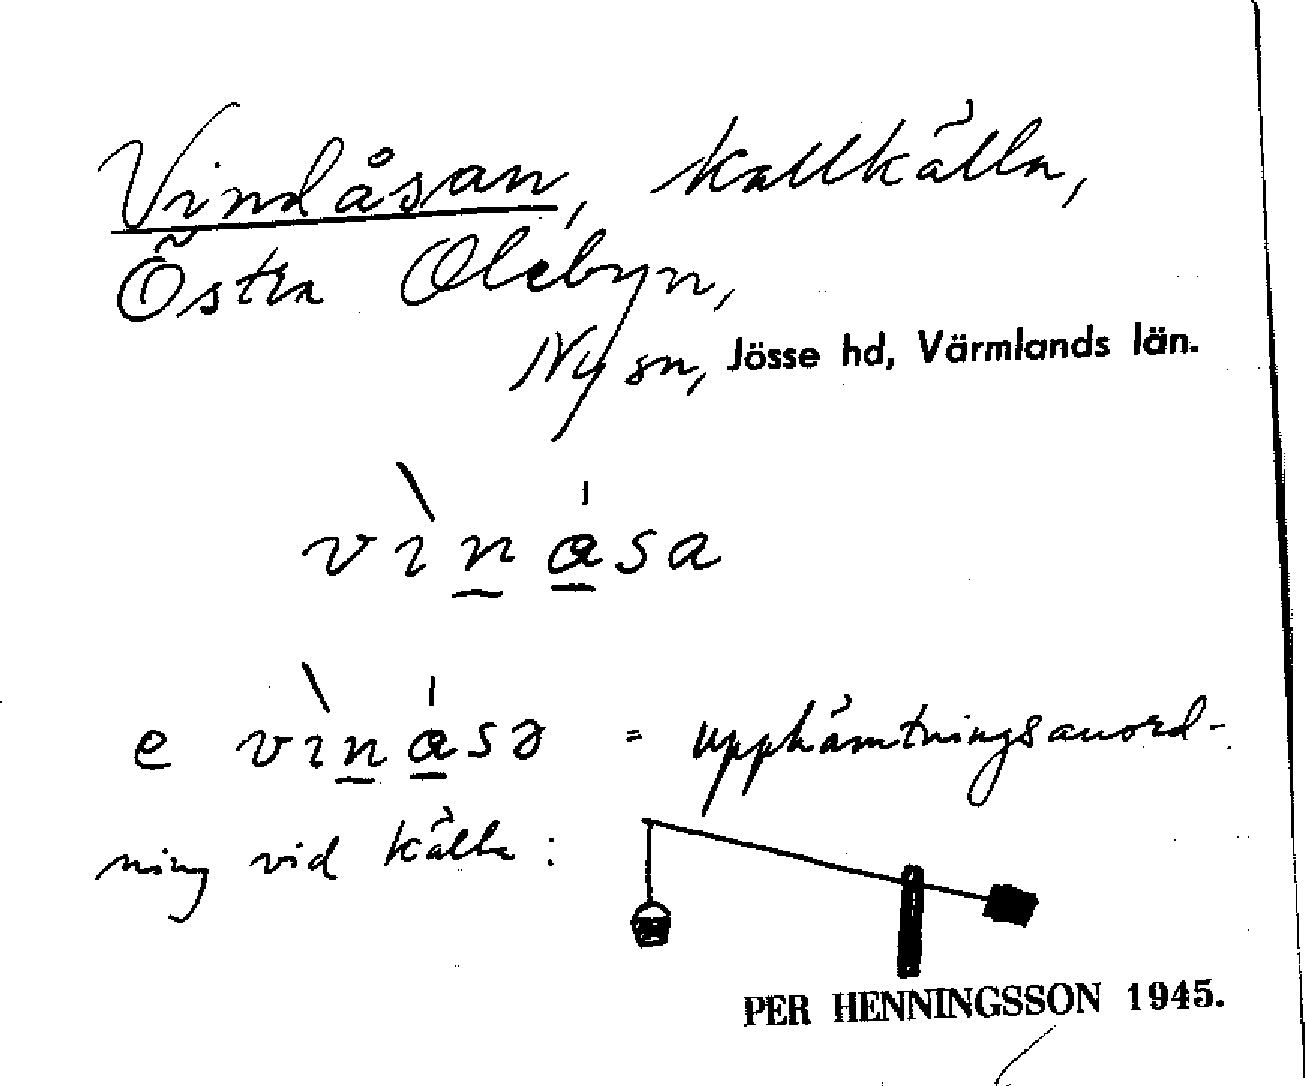 Vindåsan, kallkälla,
Östra Olebyn,
Ny sn, Jösse hd, Värmlands län.
vìnåsa
e vìnåsə = upphämtningsanord-
ning vid källa:
PER HENNINGSSON 1945.